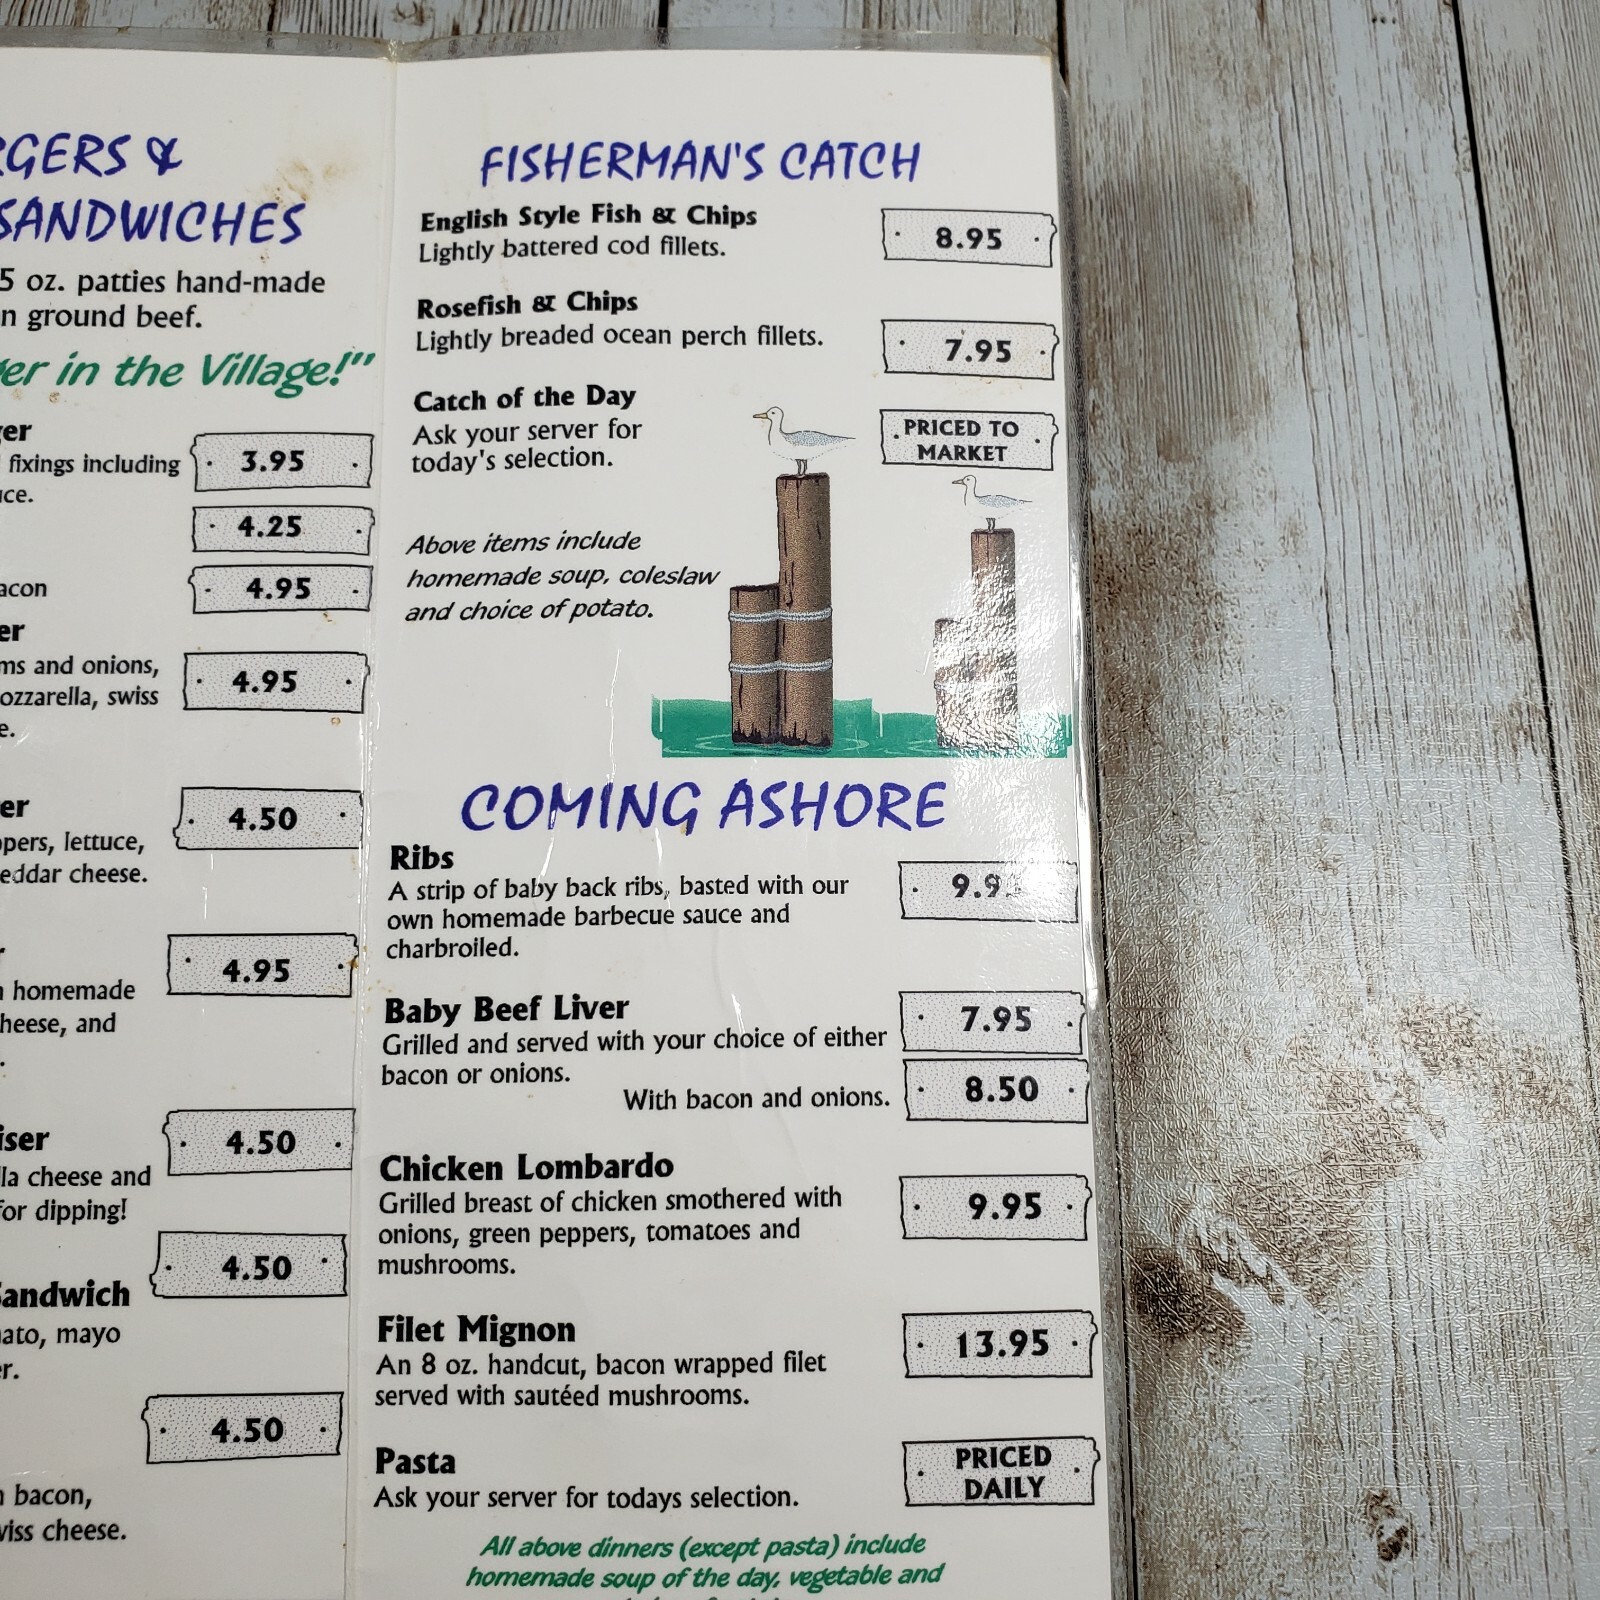 &
SANDWICHES
5 oz. patties hand-made
ground beef.
in the Village!"
fixings including
3.95
4.25
4.95
ms and onions,
swiss
4.95
lettuce,
cheese.
4.50
homemade
and
4.95
cheese and
for dipping!
4.50
Sandwich
mayo
4.50
4.50
bacon,
cheese.
FISHERMAN'S CATCH
English Style Fish & Chips
Lightly battered cod fillets.
8.95
Rosefish & Chips
Lightly breaded ocean perch fillets.
7.95
Catch of the Day
Ask your server for
today's selection.
PRICED TO
MARKET
Above items include
homemade soup, coleslaw
and choice of potato.
COMING ASHORE
Ribs
A strip of baby back ribs, basted with our
own homemade barbecue sauce and
charbroiled.
Baby Beef Liver
Grilled and served with your choice of either
bacon or onions.
7.95
With bacon and onions.
8.50
Chicken Lombardo
Grilled breast of chicken smothered with
onions, green peppers, tomatoes and
mushrooms.
9.95
Filet Mignon
An 8 oz. handcut, bacon wrapped filet
served with sautéed mushrooms.
13.95
Pasta
Ask your server for todays selection.
PRICED
DAILY
All above dinners (except pasta) include
homemade soup of the day, vegetable and